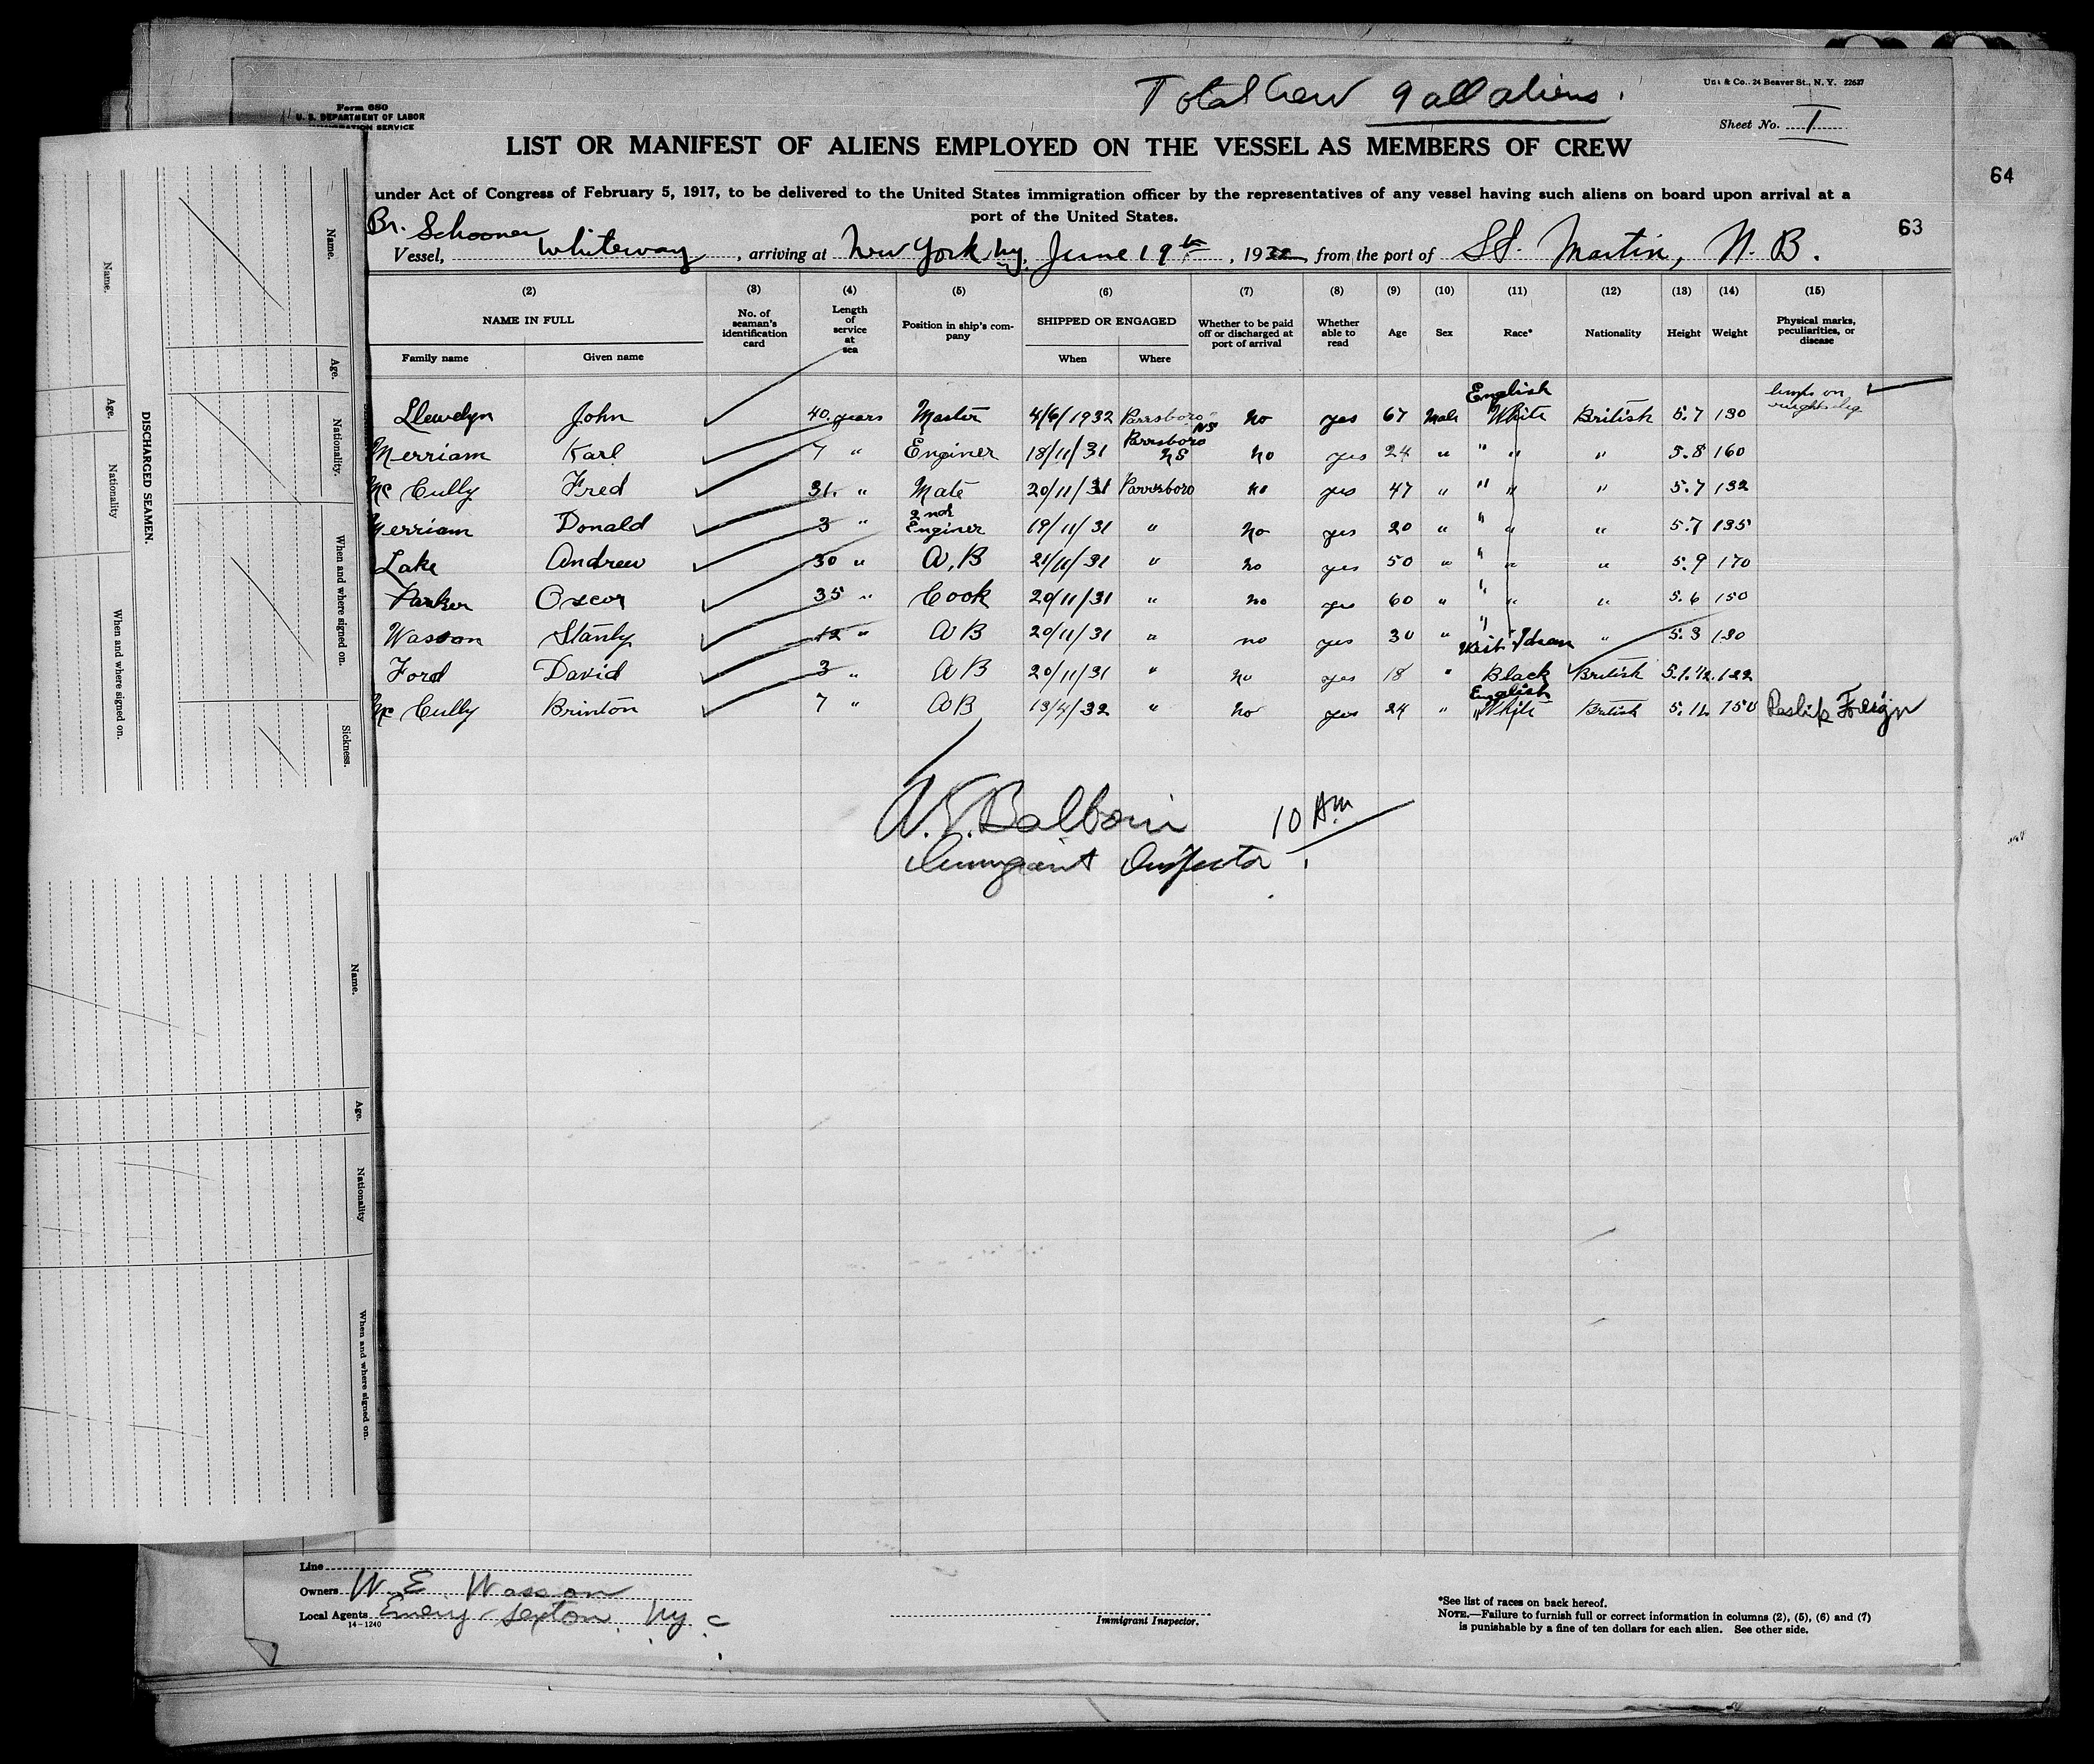 Total Crew 9 all aliens.
& Co., 24 Beaver St., N. Y. 22637
Form 680
U. S. DEPARTMENT OF LABOR
IMMIGRATION SERVICE
Sheet No. I
LIST OR MANIFEST OF ALIENS EMPLOYED ON THE VESSEL AS MEMBERS OF CREW
64
under Act of Congress of February 5, 1917, to be delivered to the United States immigration officer by the representatives of any vessel having such aliens on board upon arrival at a
port of the United States.
63
Br. Schooner
Vessel, Whiteway, arriving at New York Ny, June 19th, 1932 from the port of St. Martin, N. B.
(2) (3) (4) (5) (6) (7) (8) (9) (10) (11) (12) (13) (14) (15)
NAME IN FULL No. of seaman's identification card Length of service at sea Position in ship's company SHIPPED OR ENGAGED Whether to be paid off or discharged at port of arrival Whether able to read Age Sex Race* Nationality Height Weight Physical marks, peculiarities, or disease
Family name Given name When Where
English
Llewelyn John 40 years Master 4/6/1932 Parrsboro NS No yes 67 Male White British 5.7 130
Merriam Karl 7 " Enginer 18/11/31 Parrsboro NS No yes 24 " " " " 5.8 160
Mc Cully Fred 31. " Mate 20/11/31 Parrsboro No yes 47 " " " " 5.7 132
Merriam Donald 3 " 2nd Enginer 19/11/31 " No yes 20 " " " " 5.7 135
Lake Andrew 30 " A.B 21/11/31 " No yes 50 " " " " 5.9 170
Parker Oscor 35 " Cook 20/11/31 " No yes 60 " " " " 5.6 150
Wasson Stanly 12 " AB 20/11/31 " no yes 30 " " " 5.3 130
Ford David 3 " AB 20/11/31 " No yes 18 " West Idean Black British 5.1½ 122
Mc Cully Brinton 7 " AB 13/4/32 " No yes 24 " English "White British 5.11 150 Reship Foreign
10 Am
Immigrant Inspector
Line
Owners W. E Wasson
Local Agents Emery Sexton, Ny C
14-1240
Immigrant Inspector.
*See list of races on back hereof.
NOTE.—Failure to furnish full or correct information in columns (2), (5), (6) and (7)
is punishable by a fine of ten dollars for each alien. See other side.
DISCHARGED SEAMEN.
Name. Age. Nationality. When and where signed on. Sickness.
Name. Age. Nationality When and where signed on.
Name. Age. Nationality When and where signed on.